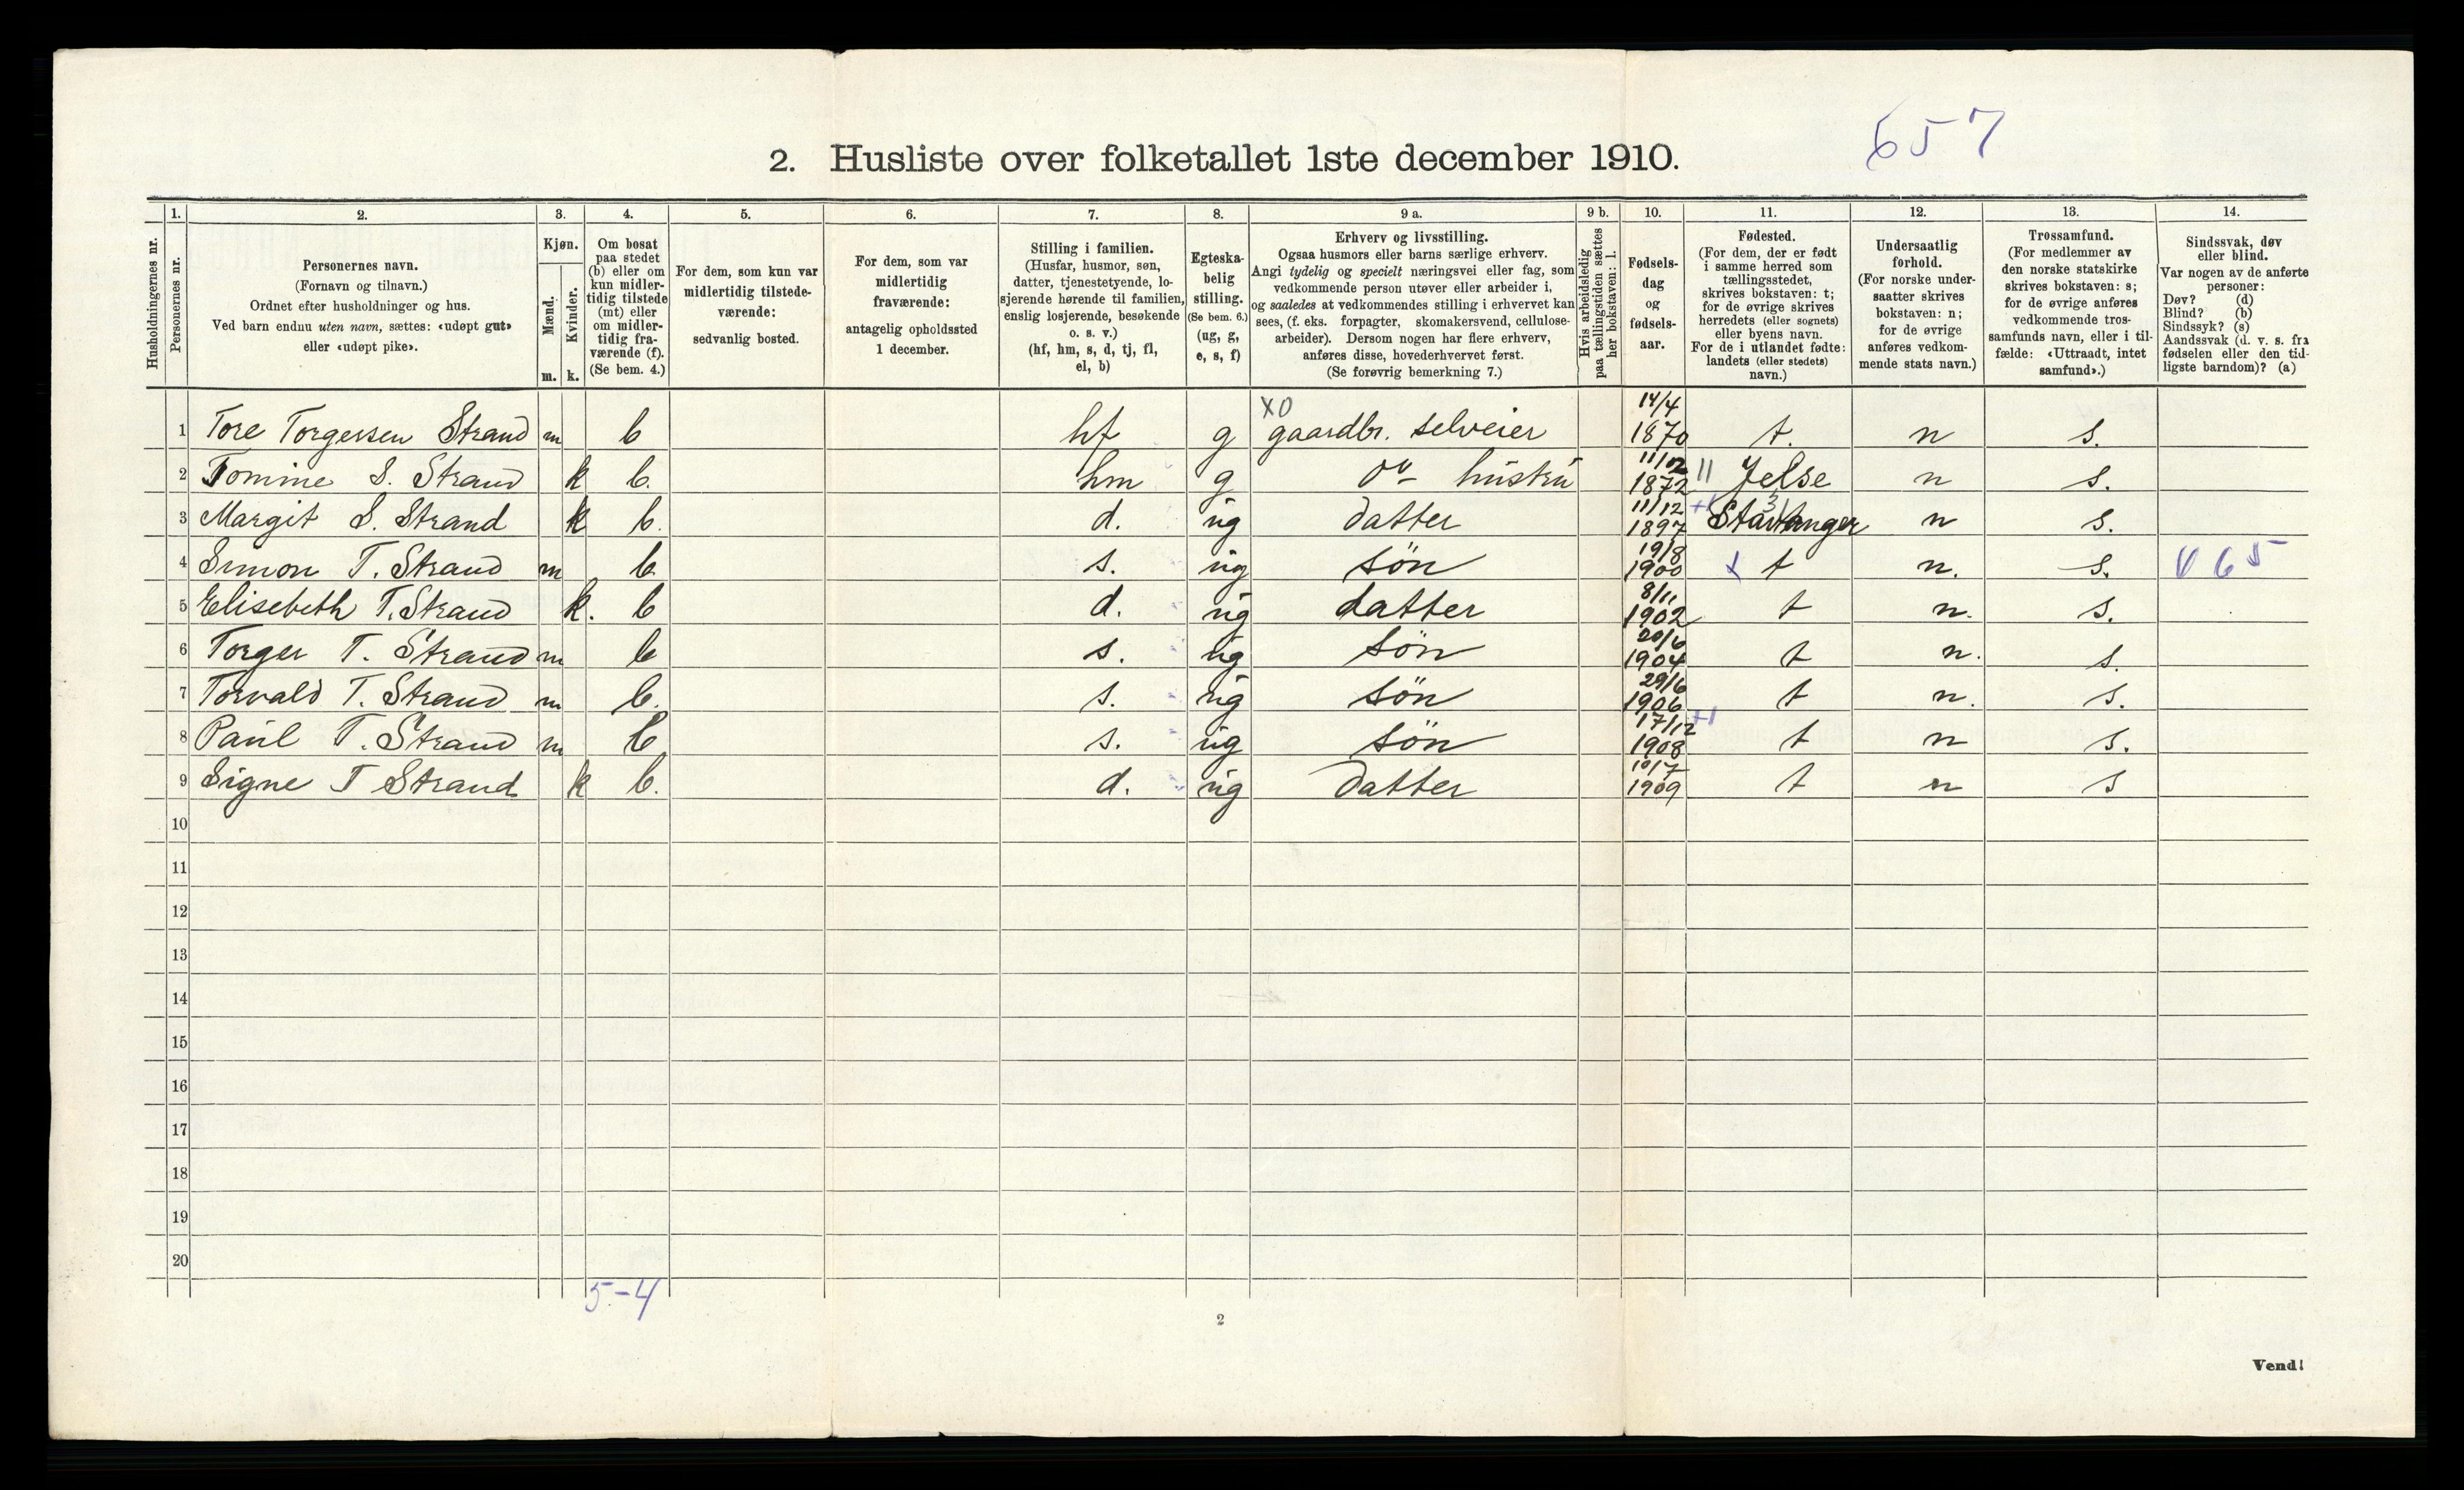 657
2. Husliste over folketallet 1ste december 1910.
Husholdningernes nr.
1. Personernes nr.
2. Personernes navn. (Fornavn og tilnavn.) Ordnet efter husholdninger og hus. Ved barn endnu uten navn, sættes: «udøpt gut» eller «udøpt pike».
3. Kjøn. Mænd. m. Kvinder. k.
4. Om bosat paa stedet (b) eller om kun midlertidig tilstede (mt) eller om midlertidig fraværende (f). (Se bem. 4.)
5. For dem, som kun var midlertidig tilstedeværende: sedvanlig bosted.
6. For dem, som var midlertidig fraværende: antagelig opholdssted 1 december.
7. Stilling i familien. (Husfar, husmor, søn, datter, tjenestetyende, losjerende hørende til familien, enslig losjerende, besøkende o. s. v.) (hf, hm, s, d, tj, fl, el, b)
8. Egteskabelig stilling. (Se bem. 6.) (ug, g, e, s, f)
9 a. Erhverv og livsstilling. Ogsaa husmors eller barns særlige erhverv. Angi tydelig og specielt næringsvei eller fag, som vedkommende person utøver eller arbeider i, og saaledes at vedkommendes stilling i erhvervet kan sees, (f. eks. forpagter, skomakersvend, cellulosearbeider). Dersom nogen har flere erhverv, anføres disse, hovederhvervet først. (Se forøvrig bemerkning 7.)
9 b. Hvis arbeidsledig paa tællingstiden sættes her bokstaven: l.
10. Fødselsdag og fødselsaar.
11. Fødested. (For dem, der er født i samme herred som tællingsstedet, skrives bokstaven: t; for de øvrige skrives herredets (eller sognets) eller byens navn. For de i utlandet fødte: landets (eller stedets) navn.)
12. Undersaatlig forhold. (For norske undersaatter skrives bokstaven: n; for de øvrige anføres vedkommende stats navn.)
13. Trossamfund. (For medlemmer av den norske statskirke skrives bokstaven: s; for de øvrige anføres vedkommende trossamfunds navn, eller i tilfælde: «Uttraadt, intet samfund».)
14. Sindssvak, døv eller blind. Var nogen av de anførte personer: Døv? (d) Blind? (b) Sindssyk? (s) Aandssvak (d. v. s. fra fødselen eller den tidligste barndom)? (a)
1 Tore Torgersen Strand m b hf g XO gaardbr. selveier 14/4 1870 t. n s.
2 Tomine S. Strand k b. hm g do hustru 11/12 1872 11 Jelse n s.
3 Margit S. Strand k b. d. ug datter 11/12 1897 +1 Stavanger n s.
4 Simon T. Strand m b. s. ug søn 19/8 1900 x t n. s. V 65
5 Elisebeth T. Strand k. b d. ug datter 8/11 1902 t n. s.
6 Torger T. Strand m b s. ug søn 20/6 1904 t n. s.
7 Torvald T. Strand m b. s. ug søn 29/6 1906 t n. s.
8 Paul T. Strand m b s. ug søn 17/12 1908 +1 t n s.
9 Signe T Strand k b. d. ug datter 10/7 1909 t n s
10
11
12
13
14
15
16
17
18
19
20
5-4
2
Vend!